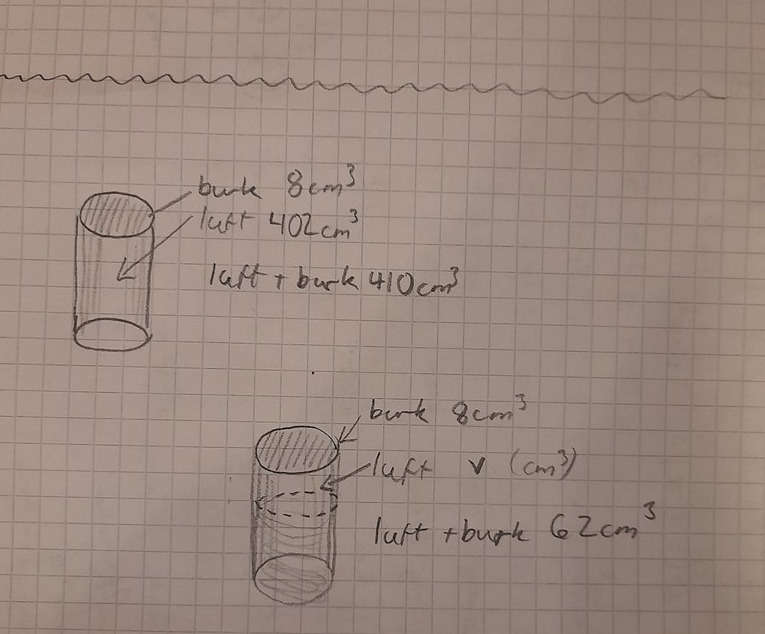 burk 8cm³
luft 402cm³
luft + burk 410cm³
burk 8cm³
luft v (cm³)
luft + burk 62cm³